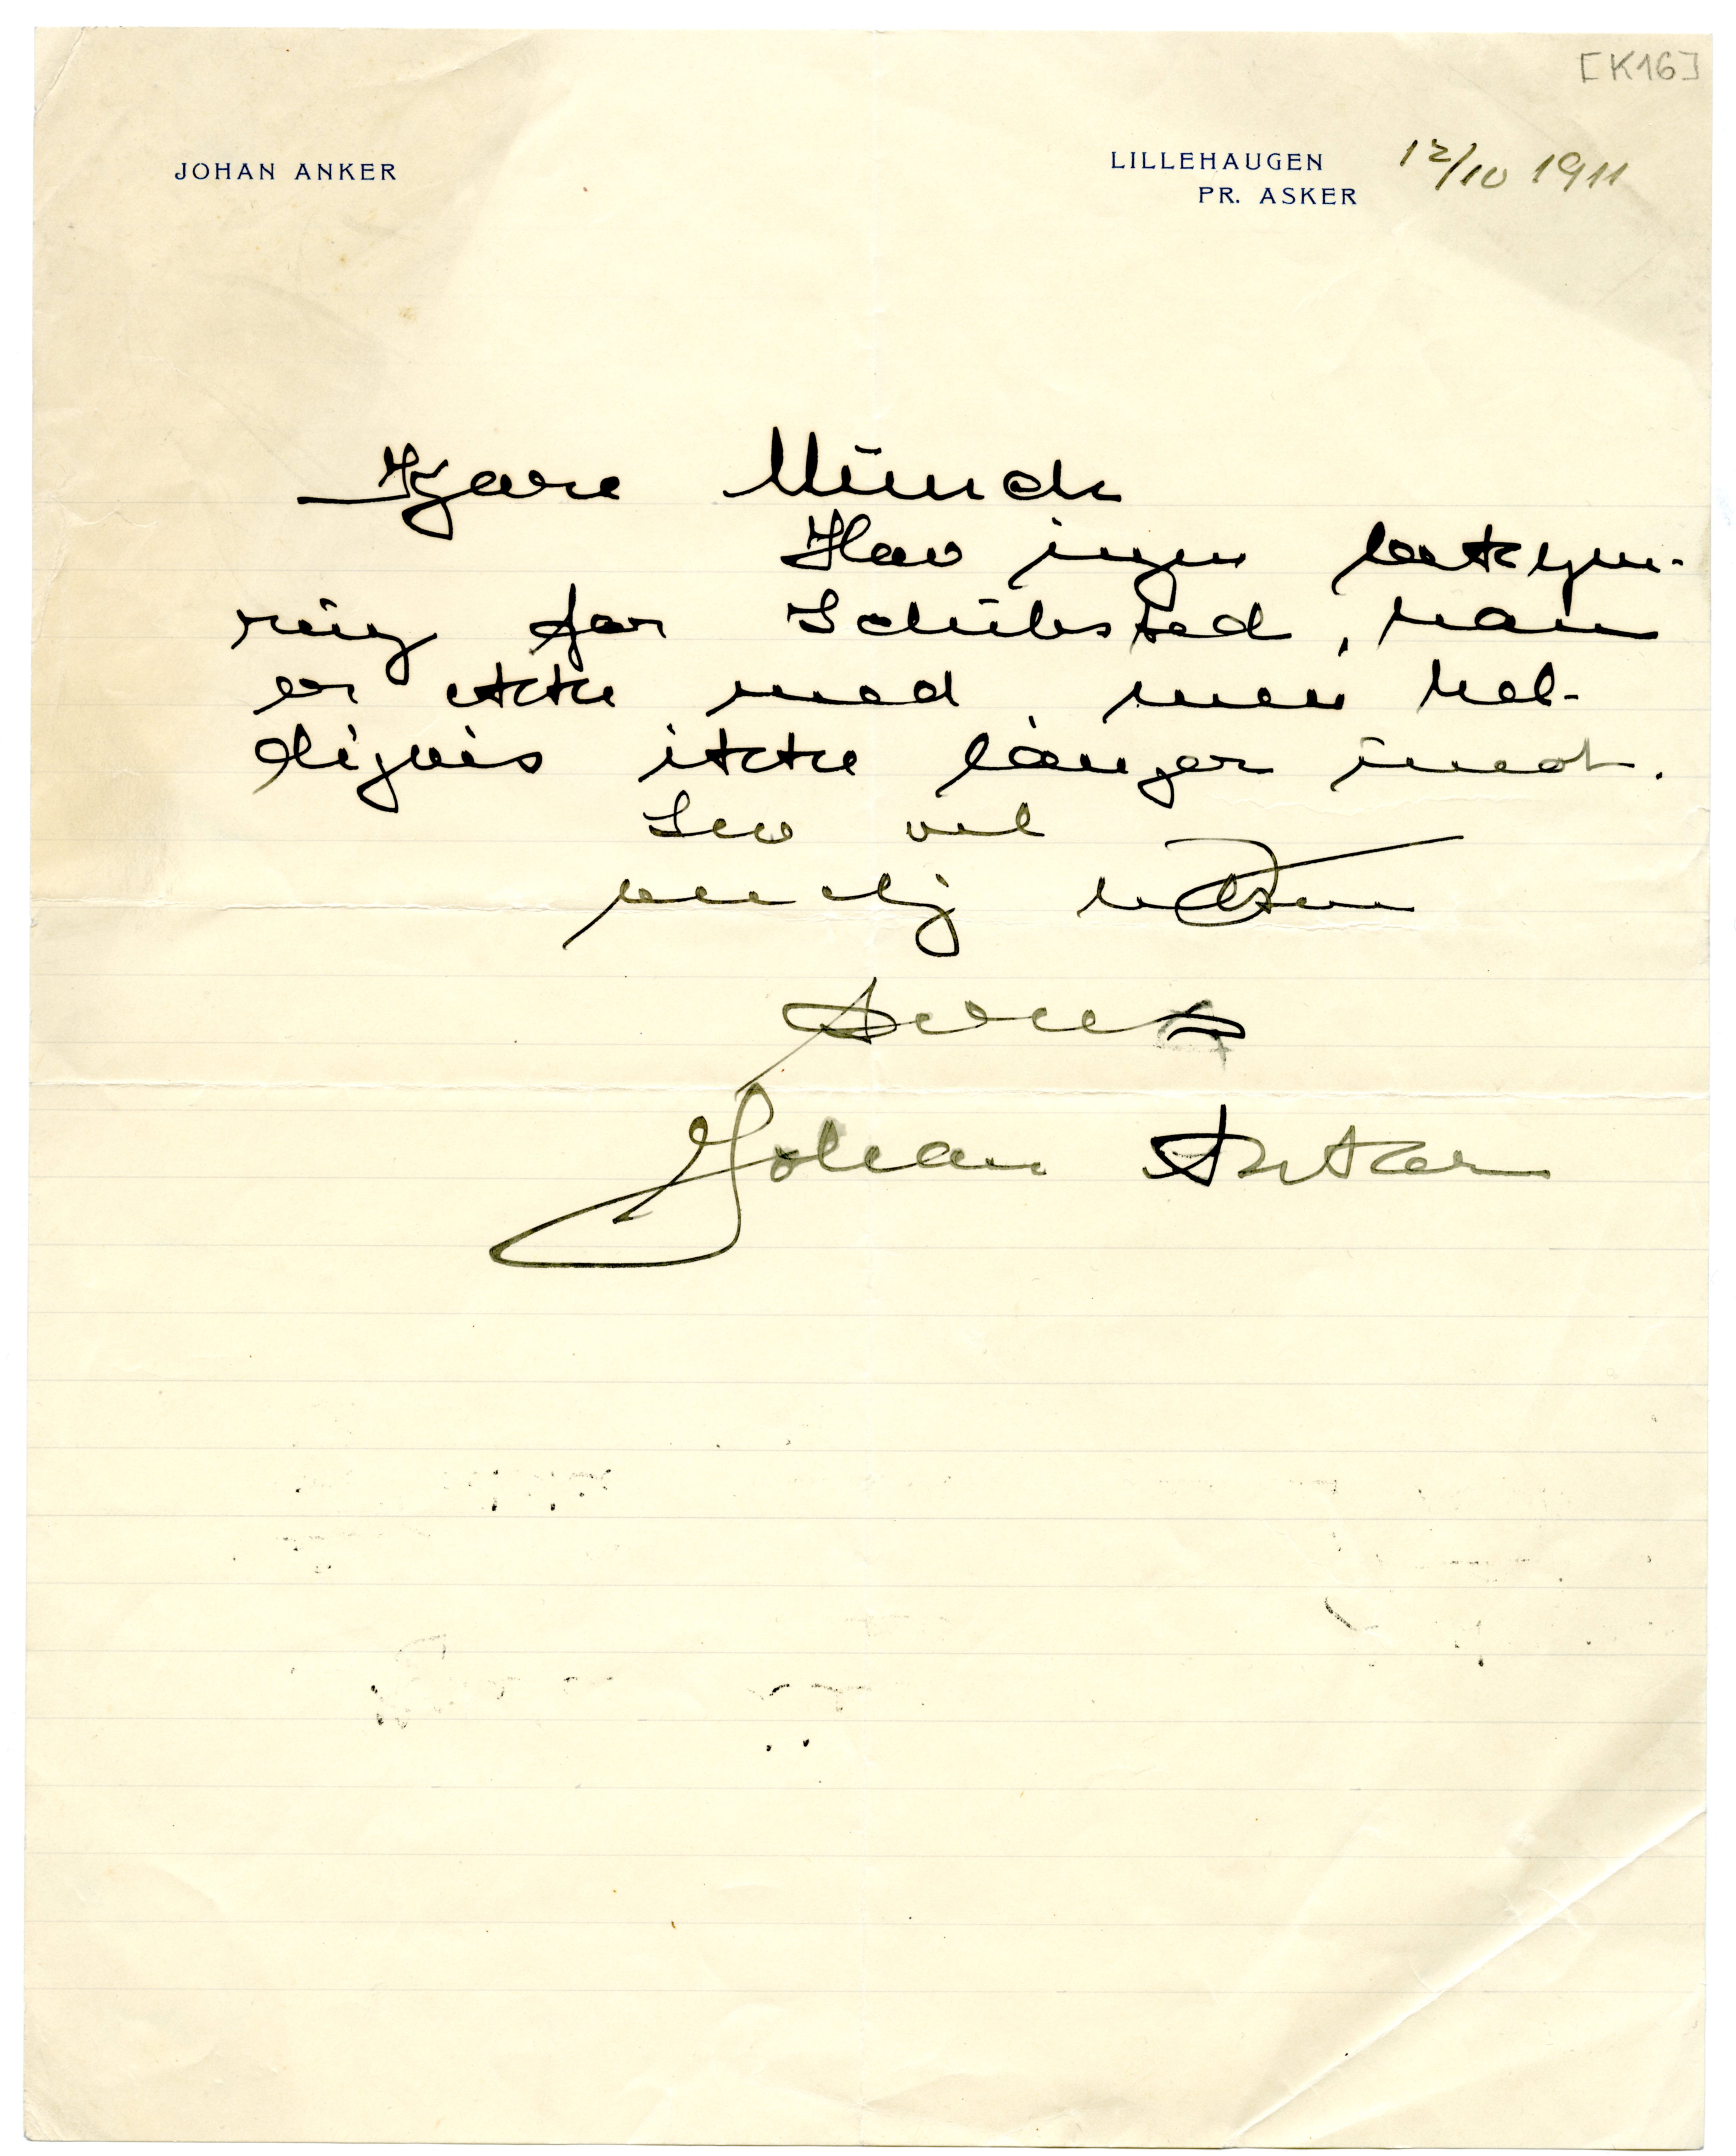 [K16]
JOHAN ANKER
LILLEHAUGEN
PR. ASKER
12/10 1911
Kjære Münch
Hav ingen bekym-
ring for Schibsted, han
er ikke med men hel-
digvis ikke længer imot.
Lev vel
venlig hilsen
Deres
Johan Anker